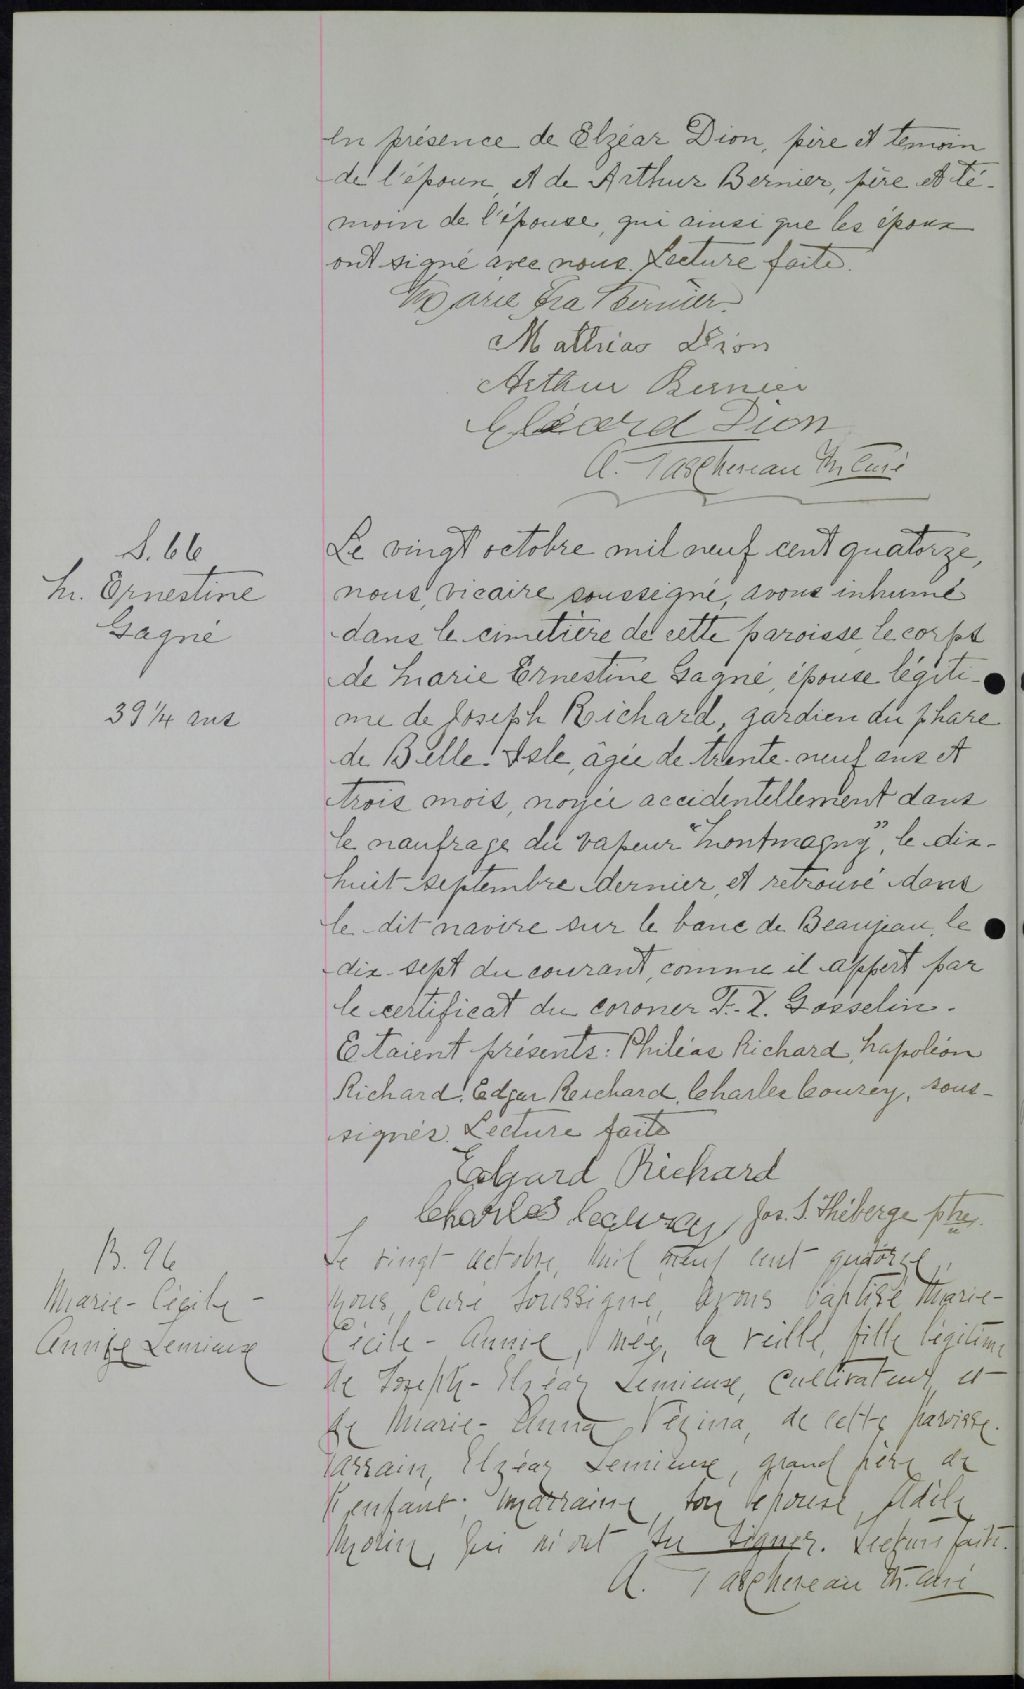 en présence de Elzéar Dion, père et temoin
de l'époux, et de Arthur Bernier, père et té-
moin de l'épouse, qui ainsi que les époux
ont signé avec nous. Lecture faite.
Marie Bernier
Mathias Dion
Arthur Bernier
Eléard Dion
A. Taschereau Ptr Curé
S. 66
M. Ernestine
Gagné
39 1/4 ans
Le vingt octobre mil neuf cent quatorze,
nous, vicaire soussigné, avons inhumé
dans le cimetière de cette paroisse, le corps
de Marie Ernestine Gagné, épouse légiti-
me de Joseph Richard, gardien du phare
de Belle-Isle, âgée de trente-neuf ans et
trois mois, noyée accidentellement dans
le naufrage du vapeur "Montmagny", le dix-
huit septembre dernier, et retrouvé dans
le dit navire sur le banc de Beaujeau, le
dix-sept du courant, comme il appert par
le certificat du coroner F.-X. Gosselin.
Etaient présents: Philéas Richard, Napoléon
Richard, Edgar Richard, Charles Courcy, sous-
signés. Lecture faite
Edgard Richard
Charles Jos. S. Théberge ptre.
B. 96
Marie-Cécile-
Annie Lemieux
Le vingt octobre, mil neuf cent quatorze,
nous, curé soussigné, avons baptisé Marie-
Cécile-Annie, née, la veille, fille légitime
de Joseph-Elzéar Lemieux, cultivateur, et
de Marie-Anna Vézina, de cette paroisse.
Parrain, Elzéar Lemieux, grand père de
l'enfant; marraine, son épouse, Adèle
Morin, qui n'ont su signer. Lecture faite.
A. Taschereau Ptr. curé